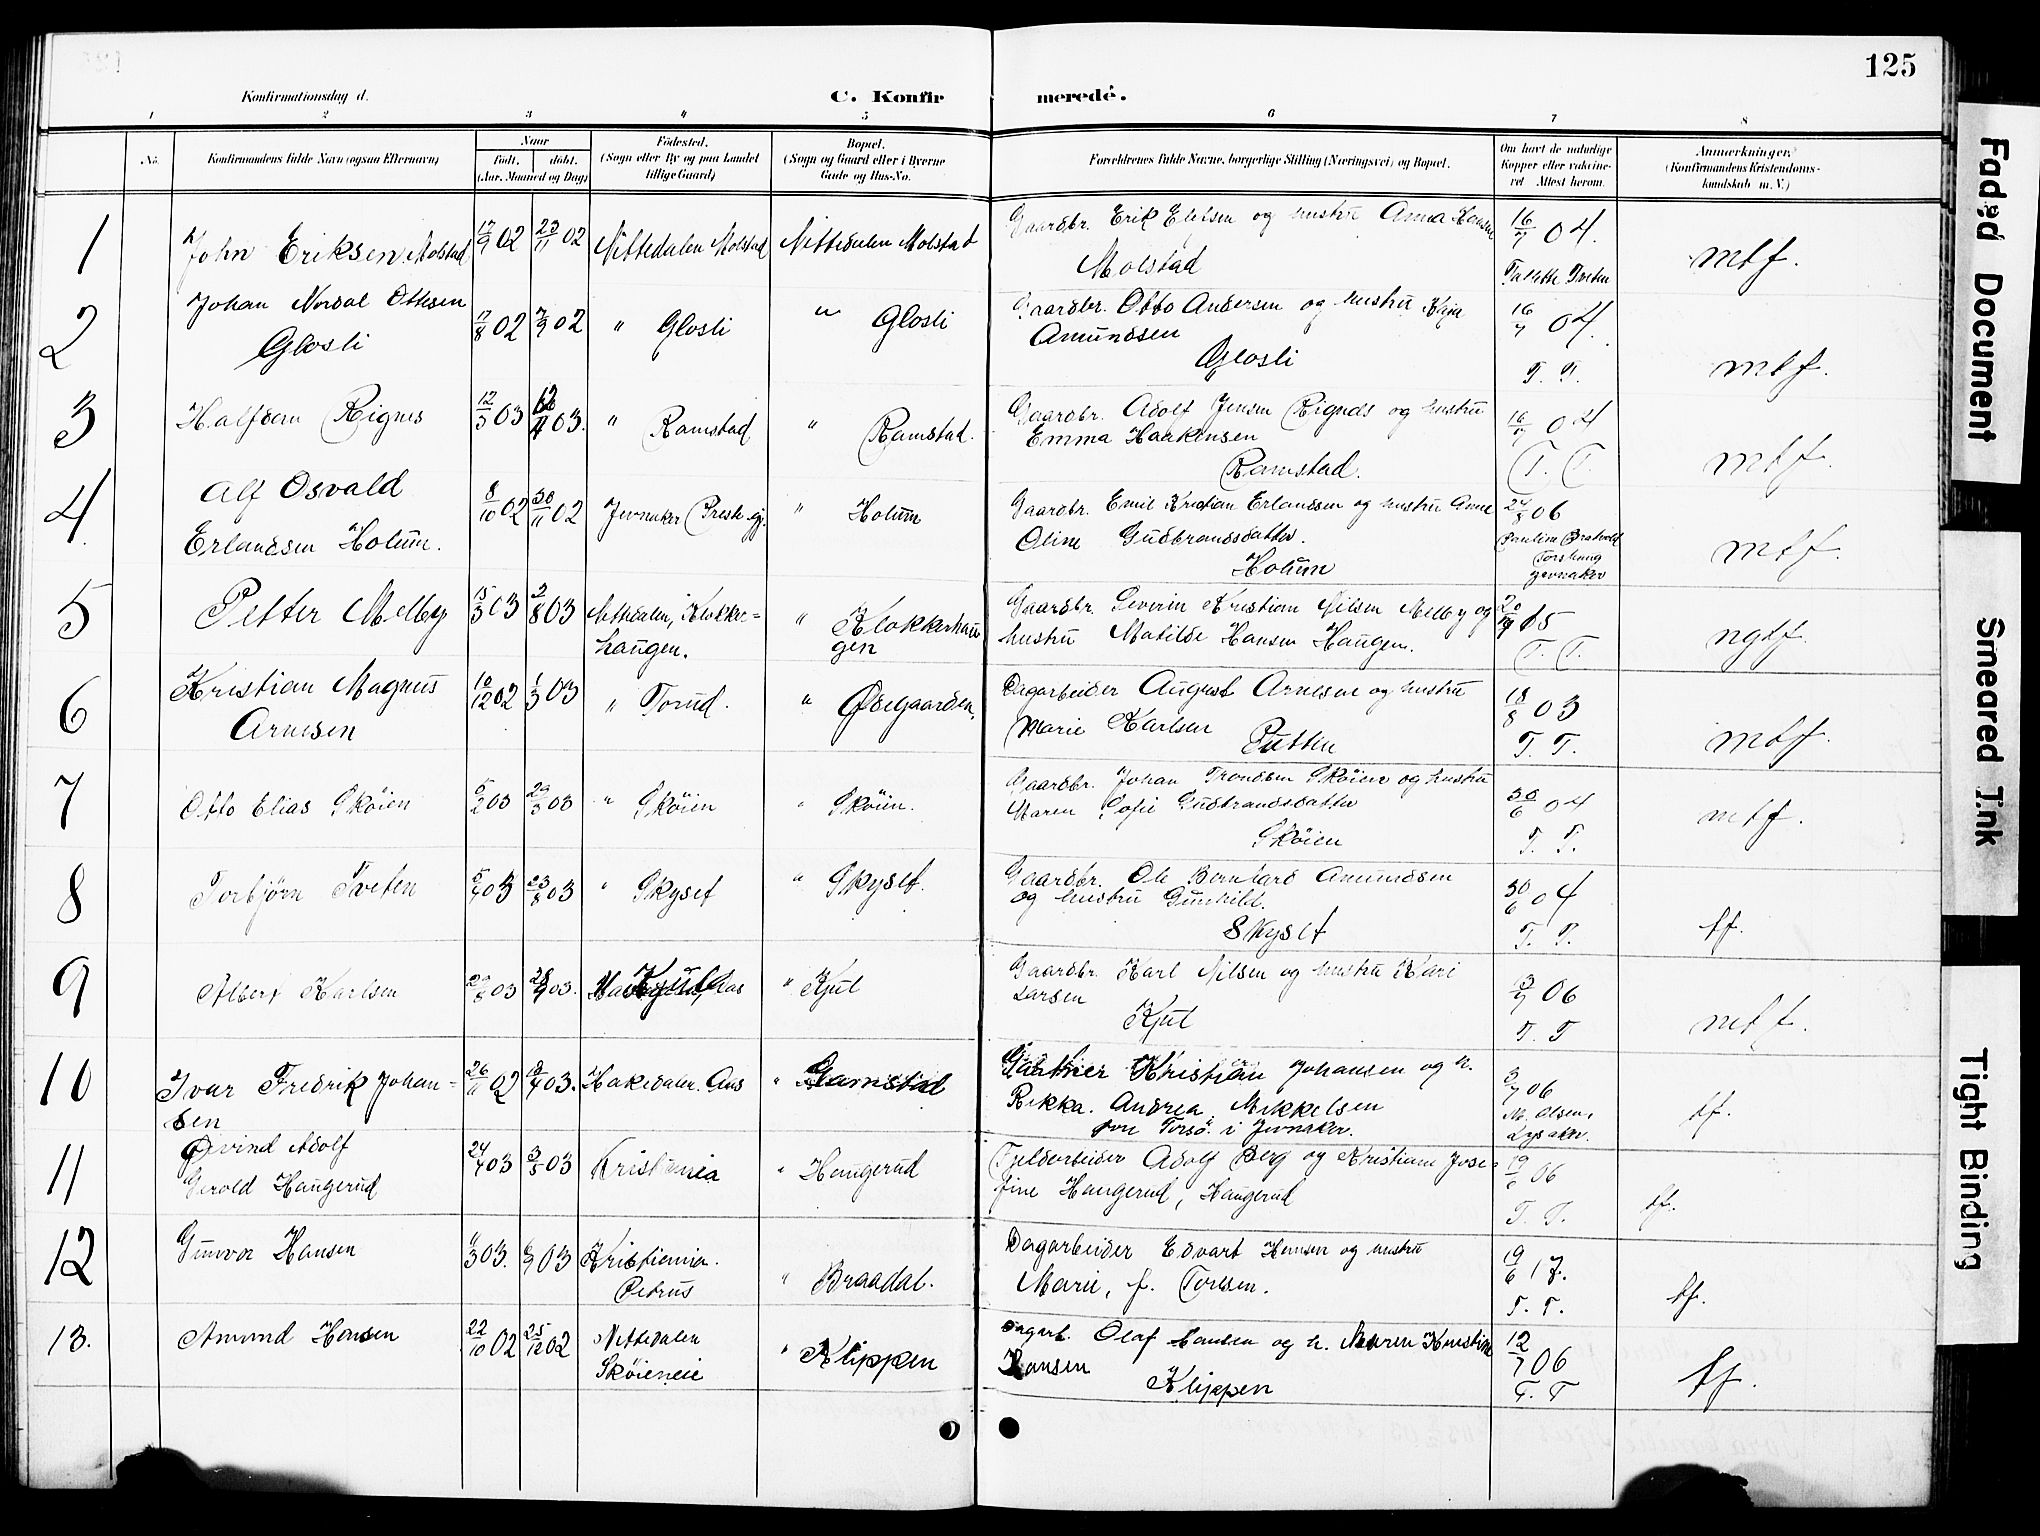 125
Konfirmationsdag d.
C. Konfir merede.
1 2 3 4 5 6 7 8
No.
Konfirmandens fulde Navn (ogsaa Efternavn)
Naar
født. døbt.
(Aar, Maaned og Dag)
Fødested.
(Sogn eller By og paa Landet
tillige Gaard)
Bopæl.
(Sogn og Gaard eller i Byerne
Gade og Hus-No.
Forældrenes fulde Navne, borgerlige Stilling (Næringsvei) og Bopæl.
Om havt de naturlige
Kopper eller vaccine-
ret Attest herom.
Anmærkninger.
(Konfirmandens Kristendoms-
kundskab m. V.)
1 John Eriksen Molstad 17/9 02 23/11 02 Nittedalen Molstad Nittedalen Molstad Gaardbr. Erik Elefsen og hustru Anna Hansen 16/7 04.
Molstad mtf.
2 Johan Nordal Ottesen
Glosli 17/8 02 7/9 02 " Glosli " Glosli Gaardbr. Otto Andersen og hustru Kaja 16/7 04
Amundsen
Glosli T. T. mtf.
3 Halfdan Rignes 12/3 03 03. " Ramstad " Ramstad. Gaardbr. Adolf Jensen Rignes og hustru 16/7 04
Emma Haakensen
Ramstad. T. T. mtf.
4 Alf Osvald
Erlandsen Holum. 8/10 02 30/11 02 Jevnaker Presteg. " Holum Gaardbr. Emil Kristian Erlandsen og hustru Anne 24/8 06
Oline Gudbrandsdatter.
Holum Pauline Bratvold
Torshaug
Jevnaker mtf.
5 Petter Melby 15/3 03 2/8 03 Nittedalen, Klokker=
haugen. " Klokkerhau
gen Gaardbr. Severin Kristian Nilsen Melby og
hustru Matilde Hansen Haugen. T. T. ngtf.
6 Kristian Magnus
Arnesen 10/12 02 1/3 03 " Torud. " Ødegaarden. Dagarbeider August Arnesen og hustru 18/8 03
Marie Karlsen Putten T. T. mtf.
7 Otto Elias Skøien 5/2 03 29/3 03 " Skøien " Skøien. Gaardbr. Johan Trondsen Skøien og hustru
Maren Sofie Gudbrandsdatter 30/6 04
Skøien T. T. mtf.
8 Torbjørn Tveten 5/7 03 23/8 03 " Skyset " Skyset. Gaardbr. Ole Berntard Amundsen
og hustru Gunhild. 30/6 04
Skyset T. T. tf.
9 Albert Karlsen 03 03. Kjul " Kjul Gaardbr. Karl Nilsen og hustru Kari
Larsen 3/7 06
Kjul T. T mtf.
10 Ivar Fredrik Johan=
sen 26/11 02 03. Hakedalen. Aas " Gamstad Kristian Johansen og h.
Rikka. Andrea. Mikkelsen 3/7 06
fra Torsø i Jevnaker. M. Olsen,
Lysaker. tf.
11 Øivind Adolf
Gerold Haugerud 24/4 03 3/5 03 Kristiania " Haugerud Fyldarbeider Adolf Berg og Kristiane Jose=
fine Haugerud, Haugerud 06
T. T. tf.
12 Gunvor Hansen 03. 03 Kristiania.
Petrus " Braadal. Dagarbeider Edvart Hansen og hustru
Marie, f. Toresen. 19/6 17.
T. T. tf.
13. Amund Hansen 22/10 02 25/12 02 Nittedalen
Skøieneie " Klippen Dagarb. Olaf Hansen og h. Maren Kristine
Hansen 12/7 06
Klippen T. T tf.
Faded Document
Smeared Ink
Tight Binding